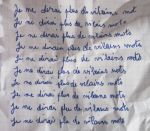 Je ne dirai plus de vilains mot
Je ne dirai plus de vilains mots
Je ne dirai plus de vilains mots
Je ne dirai plus de vilains mots
Je ne dirai plus de vilains mots
Je ne dirai plus de vilains mots
Je ne dirai plus de vilains mots
Je ne dirai plus de vilains mots
Je ne dirai plus de vilains mots